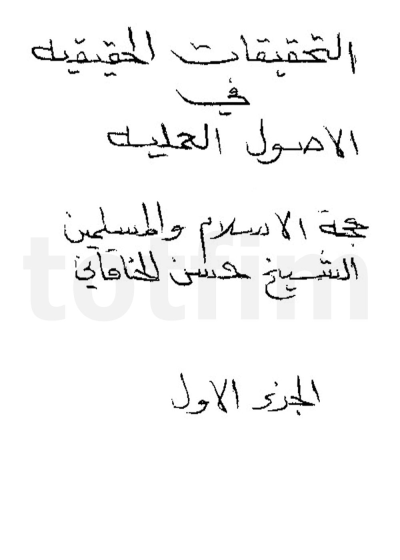 التحقيقات الحقيقيه
في
الاصول العمليه
حجة الاسلام والمسلمين
الشيخ حسن الخاقاني
totfim
الجزء الاول